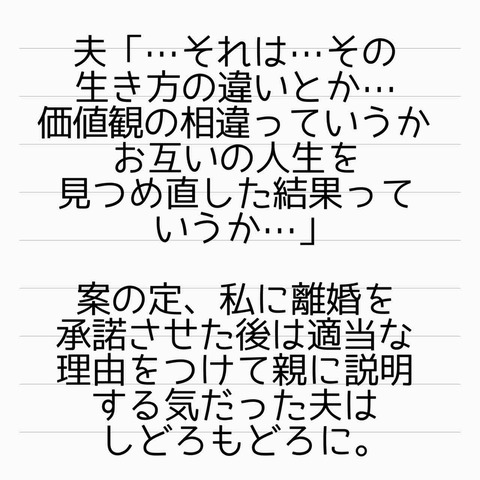 夫「…それは…その
生き方の違いとか…
価値観の相違っていうか
お互いの人生を
見つめ直した結果って
いうか…」
案の定、私に離婚を
承諾させた後は適当な
理由をつけて親に説明
する気だった夫は
しどろもどろに。